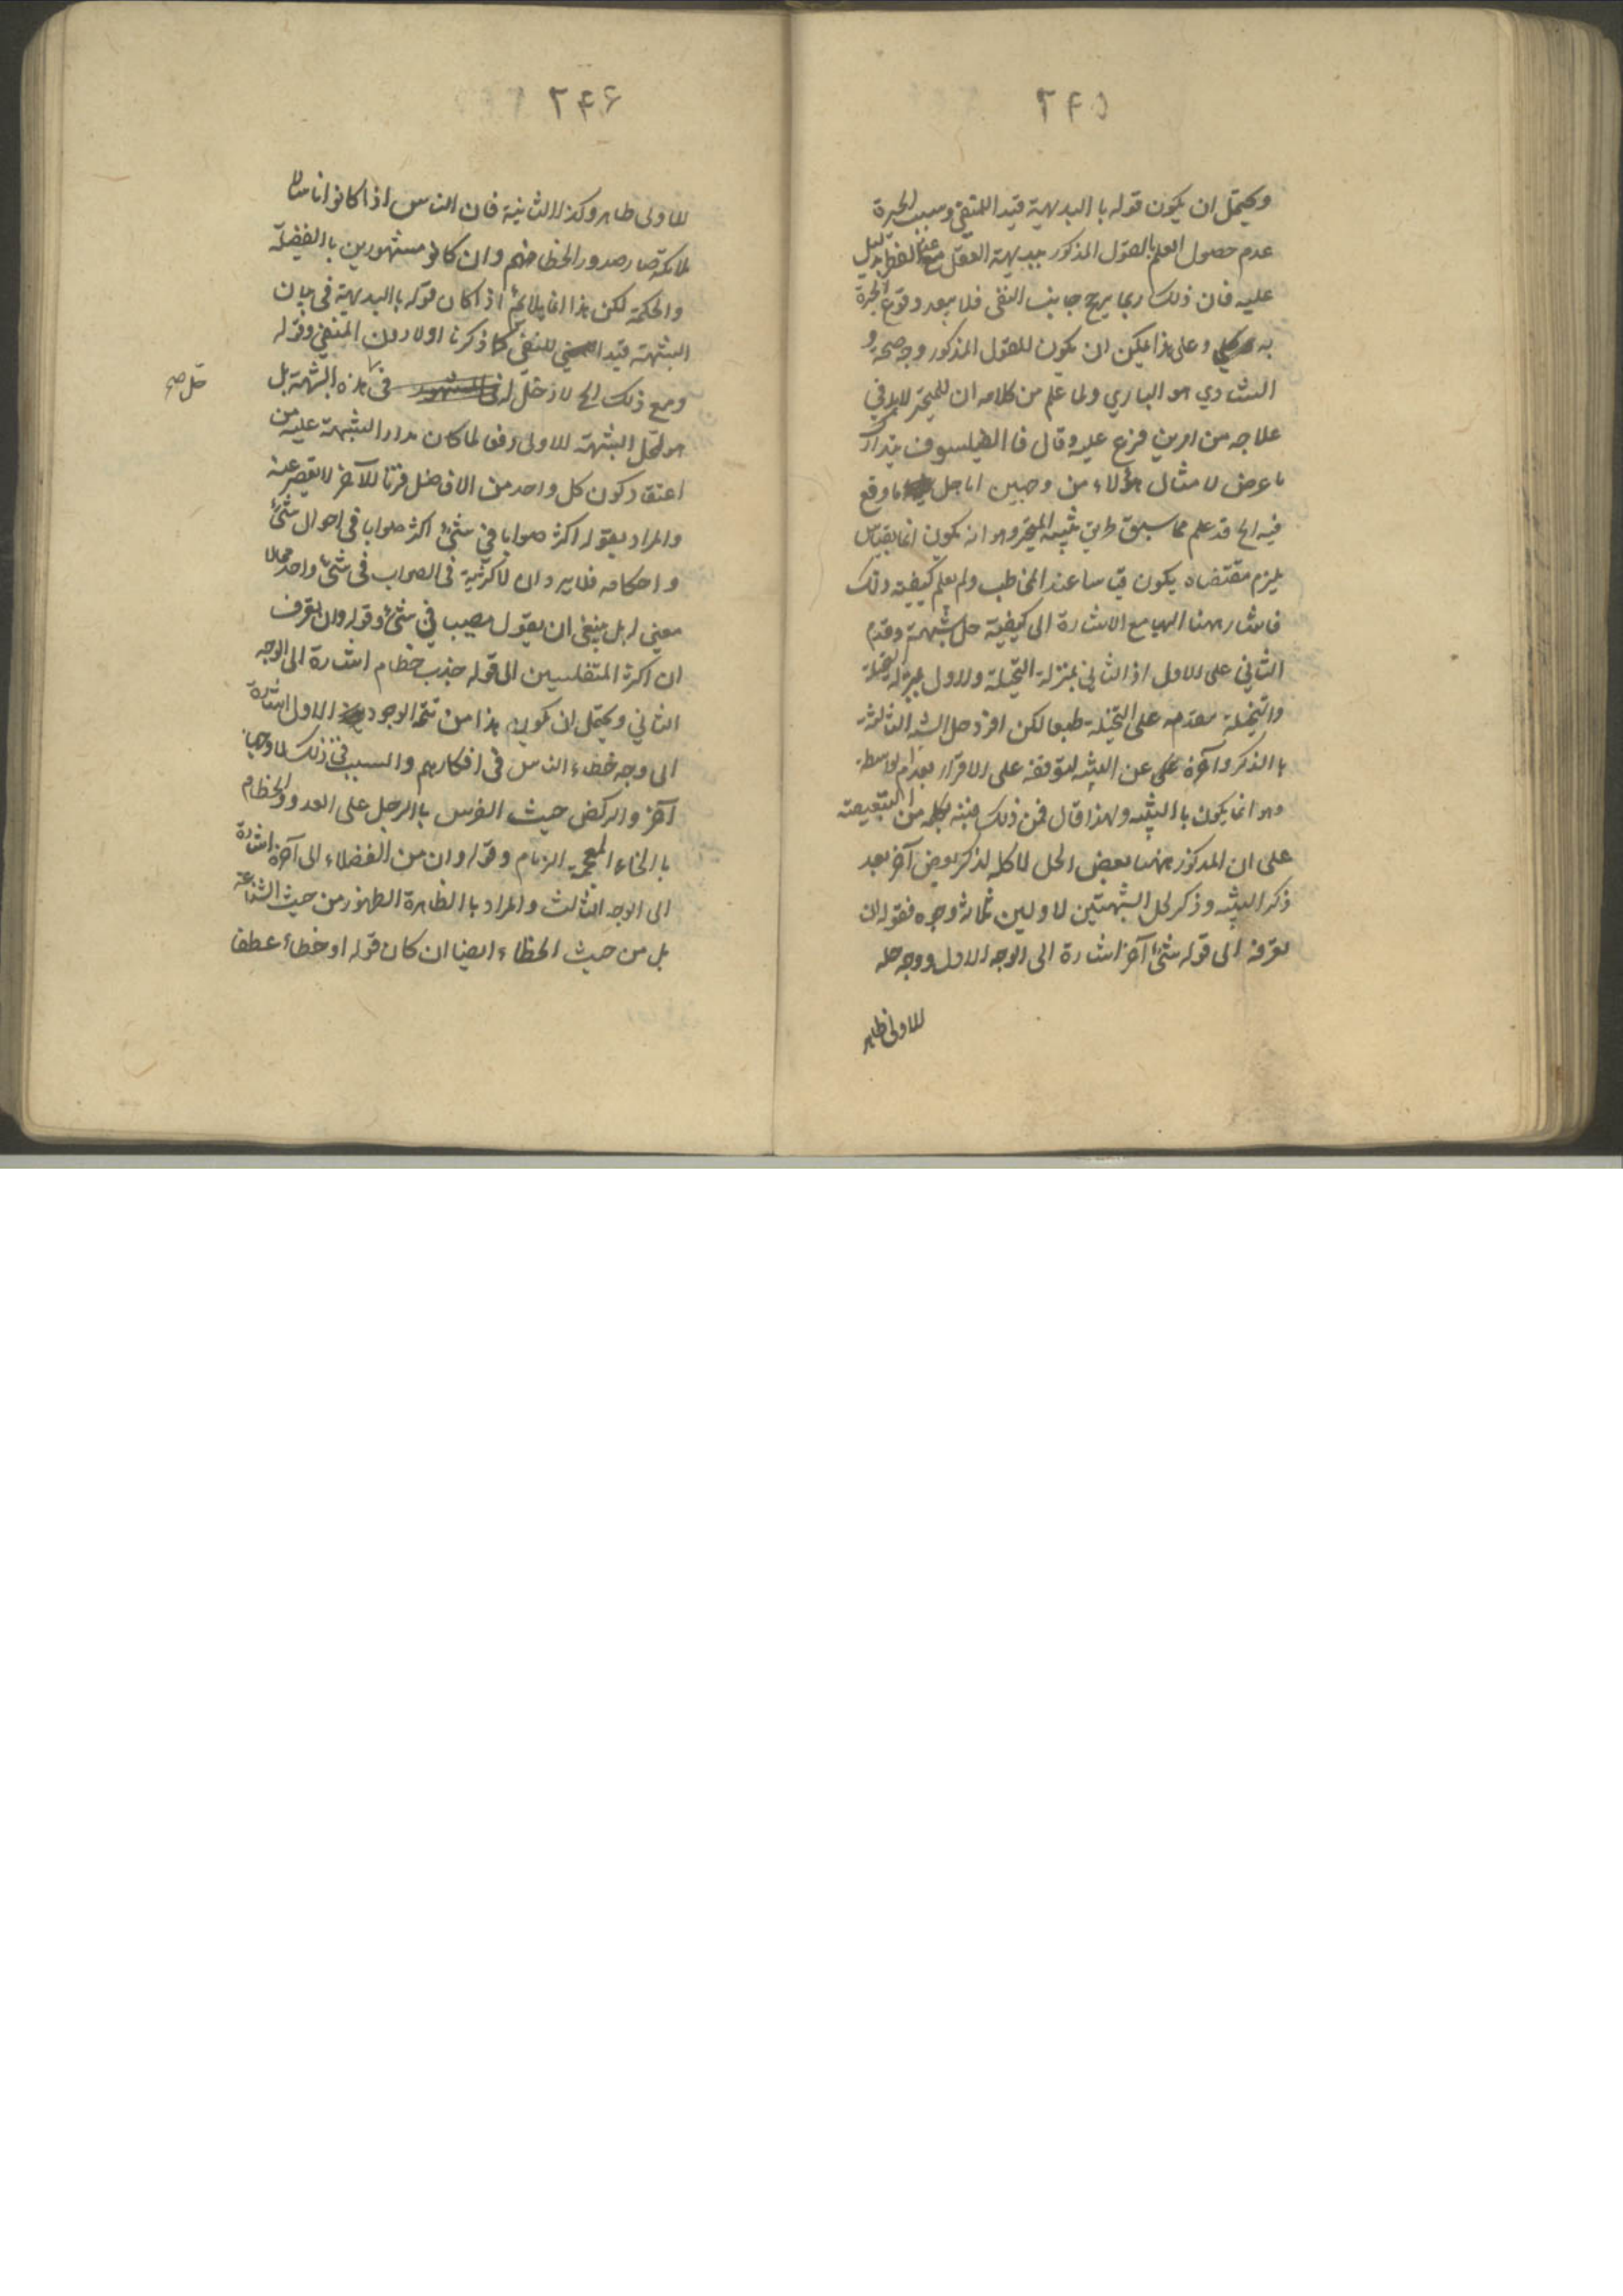 ٢٤٥
ويحتمل ان يكون قوله با البديهية قيدا للمنفى وسبب الحيرة
عدم حصول العلم بالقول المذكور ببديهة العقل مع عدم الظفر بدليل
عليه فان ذلك ربما يرجح جانب النفى فلا يبعد وقوع الحيرة
به وعلى هذا يمكن ان يكون للقول المذكور وجه صحة و
الشادي هو البادي ولما علم من كلامه ان للمتحير لابد في
علاجه من امرين فرع عليه وقال فا الفيلسوف يتدارك
ما عرض لامثال هؤلاء من وجهين اما حل ما وقع
فيه الخ قد علم مما سبق طريق تنبيه المتحير وهو انه يكون انما بقياس
يلزم مقتضاه يكون قياسا عند المخاطب ولم يعلم كيفية ذلك
فاشار ههنا اليها مع الاشارة الى كيفية حل شبهة وقدم
الثاني على الاول اذ الثاني بمنزلة التخلية والاول بمنزلة التحلية
والتخلية مقدمه على التحلية طبعا لكن افرد حل الشبه الثالثة
با الذكر وآخره عن التنبيه لتوقفه على الاقرار بعدم الواسطة
وهو انما يكون با التنبيه ولهذا قال فمن ذلك منبئه بكلمة من التبعيضية
على ان المذكور ههنا بعض الحل لا كله لذكر بعض آخر بعد
ذكر التنبيه وذكر لحل الشبهتين الاوليين ثلاثة وجوه فقوله ان
تعرفه الى قوله شئ آخر اشارة الى الوجه الاول ووجه حله
للاولى ظاهر
٢٤٦
للاولى ظاهر وكذا الثانية فان الناس اذا كانوا اناسا لا
ملائكة صار صدور الخطا منهم وان كانو مشهورين با الفضيلة
والحكمة لكن هذا انما يلائم اذا كان قوله با البديهية فى بيان
الشبهة قيدا للنفى كما ذكرنا اولا دون المنفى وقوله
ومع ذلك الخ لا دخل له فى هذه الشبهة بل
حل صح
هو لحل الشبهة الاولى وفق لما كان مدار الشبهة عليه من
اعتقاد كون كل واحد من الافاضل قرنا للآخر لا يقصر عنه
والمراد بقوله اكثر صوابا في شئ اكثر صوابا فى احوال شئ
واحكامه فلا يرد ان لا اكثرية فى الصواب فى شئ واحد مما لا
معنى له بل ينبغى ان يقول مصيب في شئ وقوله وان يعرف
ان اكثر المتفلسفين الى قوله جذب خطام اشارة الى الوجه
الثاني ويحتمل ان يكون هذا من تتمة الوجود الاول اشارة
الى وجه خطاء الناس فى افكارهم والسبب فى ذلك لا وجها
آخر والركض حيث الفرس با الرجل على العدو والخطام
با الخاء المعجمة الزمام وقوله وان من الفضلاء الى آخره اشارة
الى الوجه الثالث والمراد با الظاهرة الظهور من حيث الشناعة
بل من حيث الخطاء ايضا ان كان قوله او خطاء عطفا